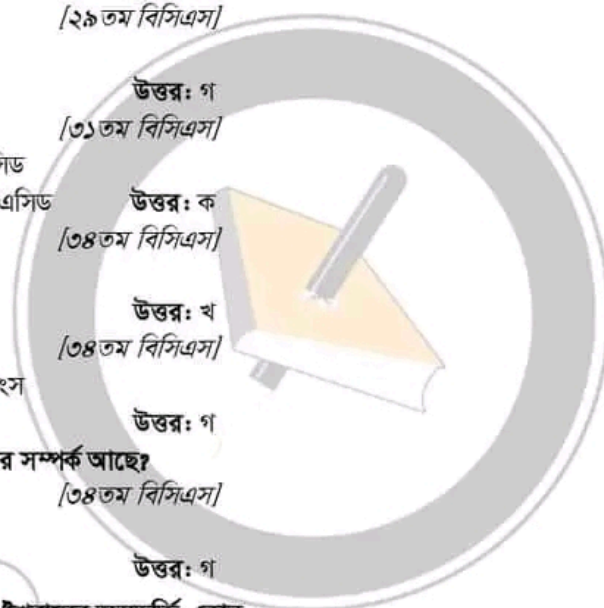 [২৯তম বিসিএস]
উত্তর: গ
[৩১তম বিসিএস]
এসিড উত্তর: ক
[৩৪তম বিসিএস]
উত্তর: খ
[৩৪তম বিসিএস]
উত্তর: গ
র সম্পর্ক আছে?
[৩৪তম বিসিএস]
উত্তর: গ